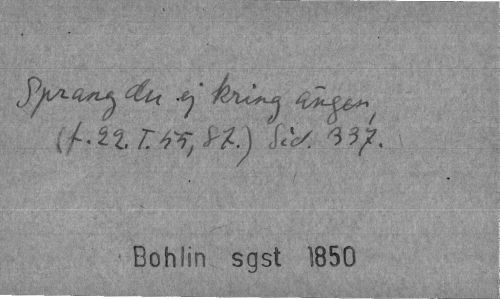 Sprang du ej kring ängen,
(f. 22. I. 55, 87.) Sid. 337.
Bohlin sgst 1850